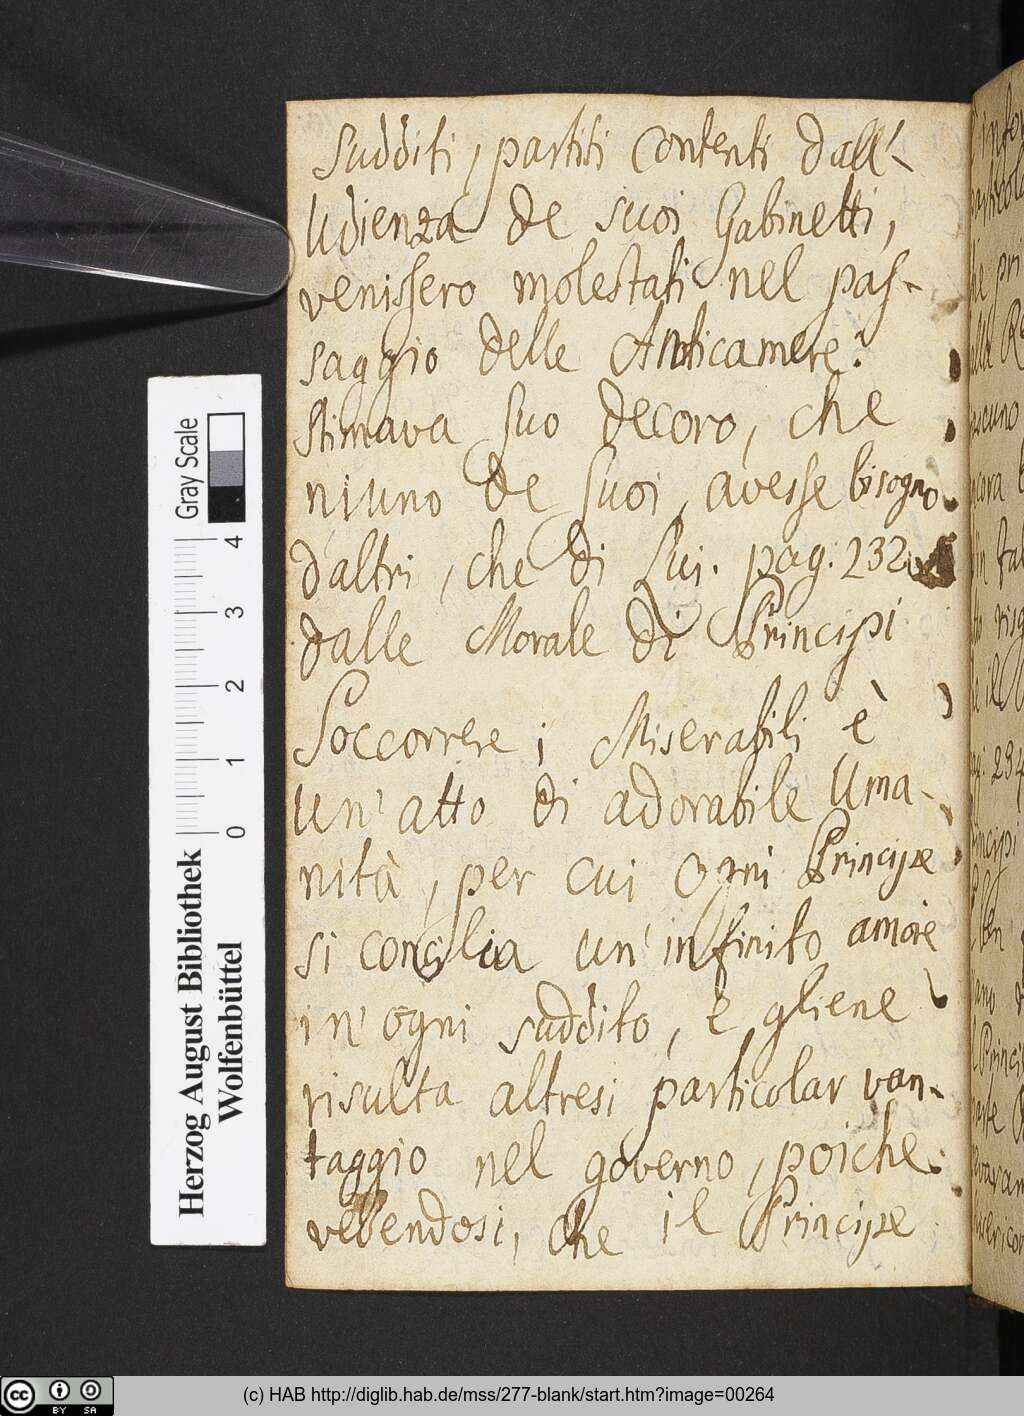 Sudditi, partiti Contenti dall'-
Udienza de suoi Gabinetti,
venissero molestati nel pas-
saggio delle Anticamere:
Stimava suo decoro, che
niuno de suoi, avesse bisogno
d'altri, che di Lui. pag: 232.
dalle Morale di Principi
Soccorrere i Miserabili è
un' atto di adorabile Uma-
nità, per cui ogni Principe
si concilia un' infinito amore
in' ogni suddito, e gliene
risulta altresi particolar van-
taggio nel governo, poiche
vedendosi, che il Principe
Gray Scale
4
3
2
1
0
Herzog August Bibliothek
Wolfenbüttel
cc BY SA
(c) HAB http://diglib.hab.de/mss/277-blank/start.htm?image=00264